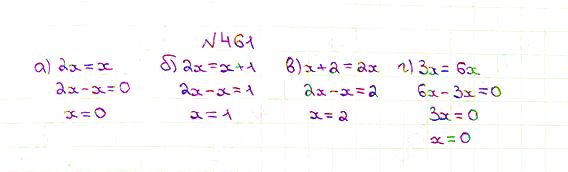 №461
а) 2x=x б) 2x=x+1 в) x+2=2x г) 3x=6x
2x-x=0 2x-x=1 2x-x=2 6x-3x=0
x=0 x=1 x=2 3x=0
x=0